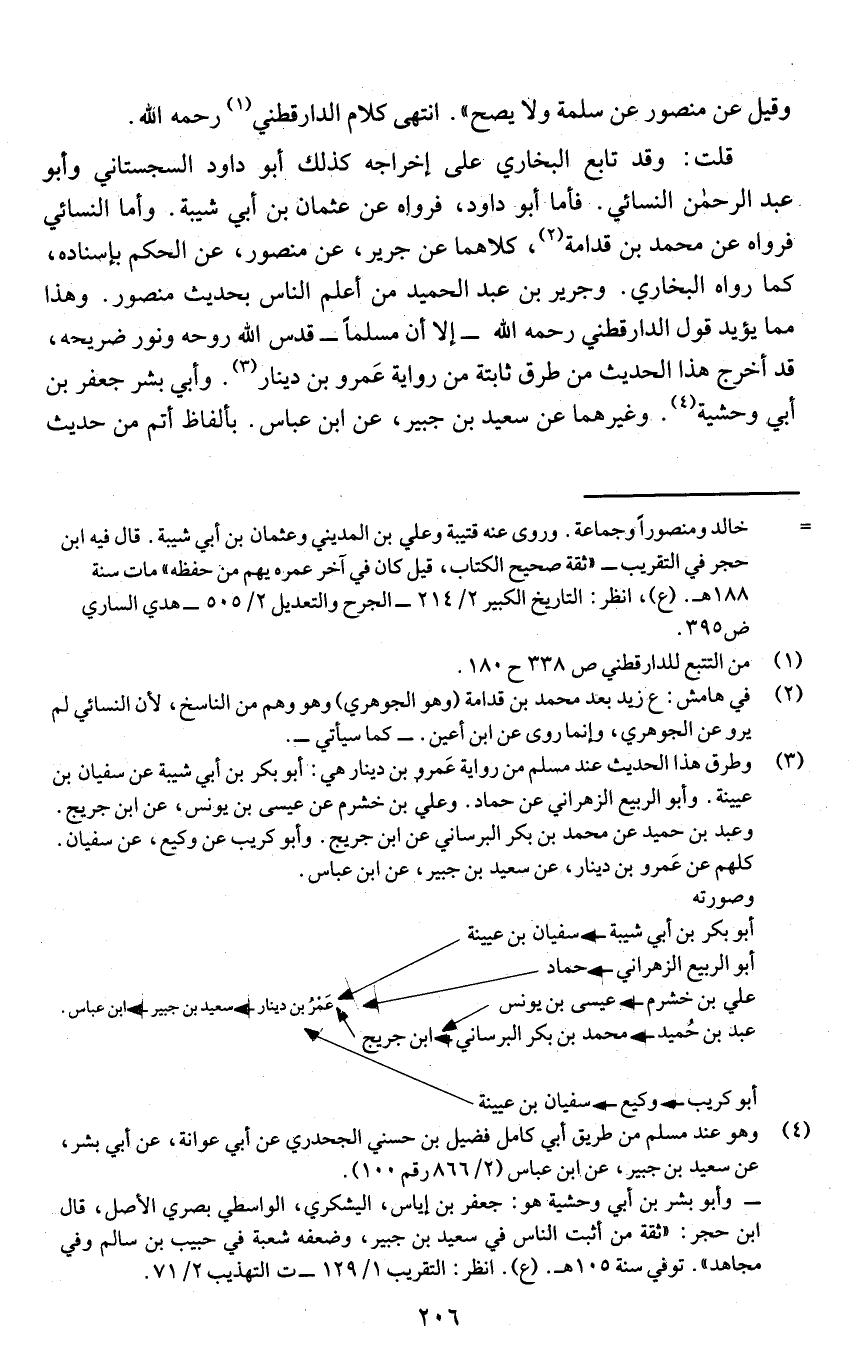 وقيل عن منصور عن سلمة ولا يصح». انتهى كلام الدارقطني(١) رحمه الله.
قلت: وقد تابع البخاري على إخراجه كذلك أبو داود السجستاني وأبو
عبد الرحمٰن النسائي. فأما أبو داود، فرواه عن عثمان بن أبي شيبة. وأما النسائي
فرواه عن محمد بن قدامة(٢)، كلاهما عن جرير، عن منصور، عن الحكم بإسناده،
كما رواه البخاري. وجرير بن عبد الحميد من أعلم الناس بحديث منصور. وهذا
مما يؤيد قول الدارقطني رحمه الله ــ إلا أن مسلماً ــ قدس الله روحه ونور ضريحه،
قد أخرج هذا الحديث من طرق ثابتة من رواية عَمرو بن دينار(٣). وأبي بشر جعفر بن
أبي وحشية(٤). وغيرهما عن سعيد بن جبير، عن ابن عباس. بألفاظ أتم من حديث
= خالد ومنصوراً وجماعة. وروى عنه قتيبة وعلي بن المديني وعثمان بن أبي شيبة. قال فيه ابن
حجر في التقريب ــ «ثقة صحيح الكتاب، قيل كان في آخر عمره يهم من حفظه» مات سنة
١٨٨هـ. (ع)، انظر: التاريخ الكبير ٢/ ٢١٤ ــ الجرح والتعديل ٢/ ٥٠٥ ــ هدي الساري
ض٣٩٥.
(١) من التتبع للدارقطني ص ٣٣٨ ح ١٨٠.
(٢) في هامش: ع زيد بعد محمد بن قدامة (وهو الجوهري) وهو وهم من الناسخ، لأن النسائي لم
يرو عن الجوهري، وإنما روى عن ابن أعين. ــ كما سيأتي ــ.
(٣) وطرق هذا الحديث عند مسلم من رواية عَمرو بن دينار هي: أبو بكر بن أبي شيبة عن سفيان بن
عيينة. وأبو الربيع الزهراني عن حماد. وعلي بن خشرم عن عيسى بن يونس، عن ابن جريج.
وعبد بن حميد عن محمد بن بكر البرساني عن ابن جريج. وأبو كريب عن وكيع، عن سفيان.
كلهم عن عَمرو بن دينار، عن سعيد بن جبير، عن ابن عباس.
وصورته
أبو بكر بن أبي شيبة ← سفيان بن عيينة
أبو الربيع الزهراني ← حماد
علي بن خشرم ← عيسى بن يونس عَمْرُ بن دينار ← سعيد بن جبير ← ابن عباس.
عبد بن حُميد ← محمد بن بكر البرساني ← ابن جريج
أبو كريب ← وكيع ← سفيان بن عيينة
(٤) وهو عند مسلم من طريق أبي كامل فضيل بن حسني الجحدري عن أبي عوانة، عن أبي بشر،
عن سعيد بن جبير، عن ابن عباس (٢/ ٨٦٦ رقم ١٠٠).
ــ وأبو بشر بن أبي وحشية هو: جعفر بن إياس، اليشكري، الواسطي بصري الأصل، قال
ابن حجر: «ثقة من أثبت الناس في سعيد بن جبير، وضعفه شعبة في حبيب بن سالم وفي
مجاهد». توفي سنة ١٠٥هـ. (ع). انظر: التقريب ١/ ١٢٩ ــ ت التهذيب ٢/ ٧١.
٢٠٦